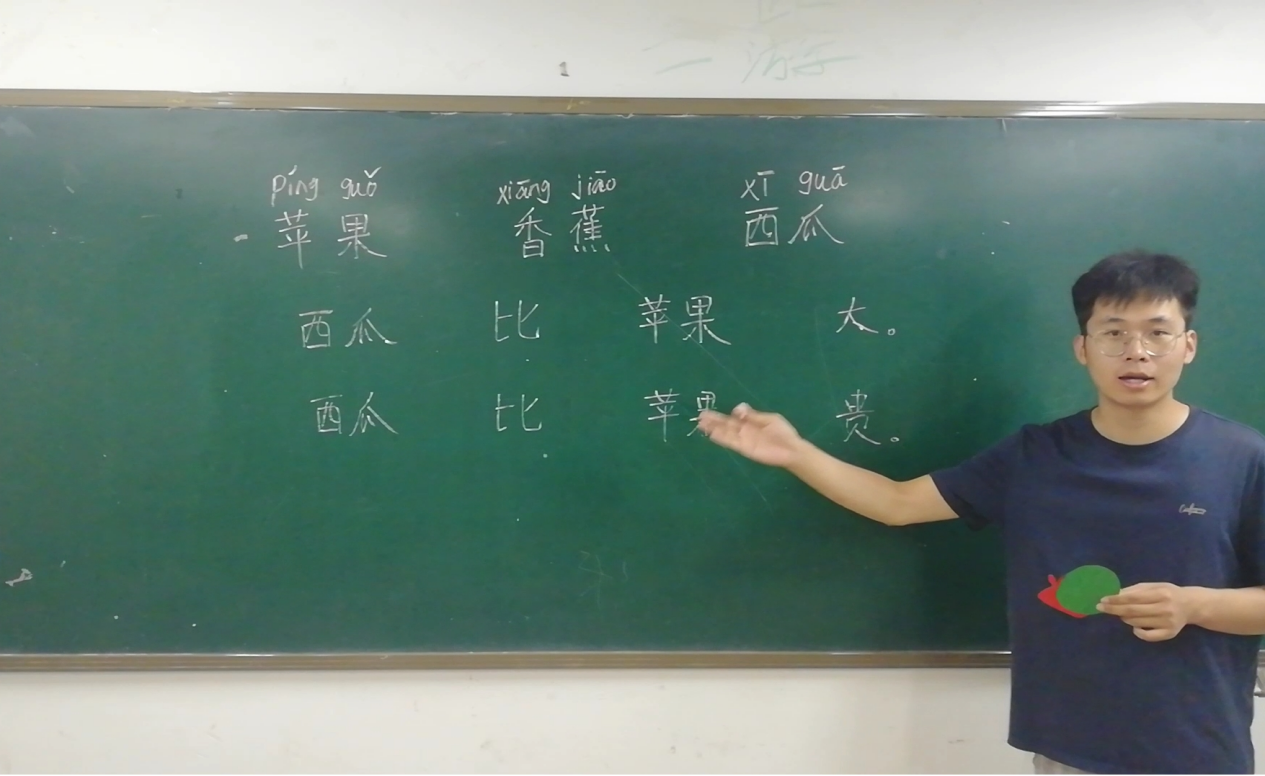 一 游学
píng guǒ xiāng jiāo xī guā
苹果 香蕉 西瓜
西瓜 比 苹果 大。
西瓜 比 苹果 贵。